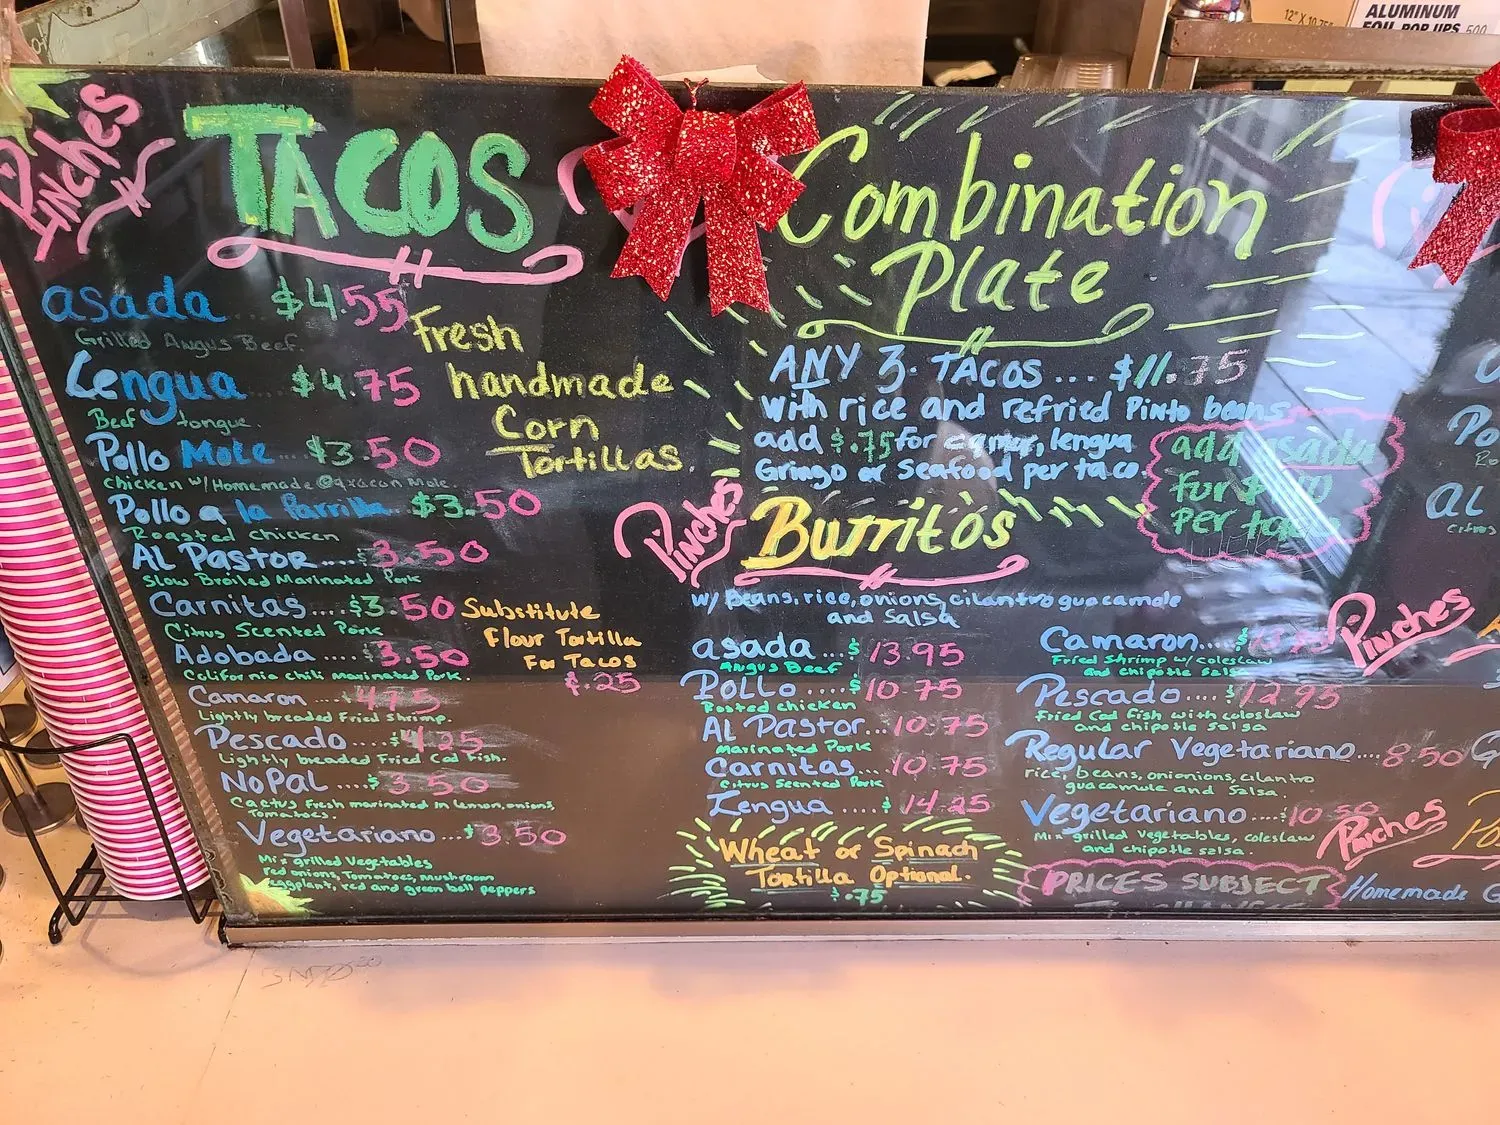 Pinches
TACOS
asada $4.55
Grilled Angus Beef.
Lengua $4.75
Beef tongue.
Pollo Mole... $3.50
chicken w/Homemade Oaxacan Mole.
Pollo a la Parrilla... $3.50
Roasted chicken
AL Pastor.... 3.50
Slow Broiled Marinated Pork
Carnitas.... $3.50
Citrus Scented Pork
Adobada .... 3.50
California chili marinated Pork.
Camaron .... 4.75
Lightly breaded Fried Shrimp.
Pescado .... $4.25
Lightly breaded Fried Cod Fish.
NoPal .... $3.50
Cactus Fresh marinated in Lemon, onions,
Tomatoes.
Vegetariano ...$3.50
Mix grilled Vegetables
red onions, Tomatoes, Mushroom
eggplant, red and green bell peppers
Fresh
handmade
Corn
Tortillas.
Substitute
Flour Tortilla
For Tacos
$.25
Combination
Plate
ANY 3. TACOS ... $11.75
with rice and refried Pinto beans
add $.75 for lengua
Gringo or Seafood per taco.
add asada
for
per taco
Pinches
Burritos
w/ Beans, rice, onions, cilantro guacamole
and Salsa
asada ...$13.95
Angus Beef
Pollo ....$10.75
Rosted chicken
AL Pastor.. 10.75
Marinated Pork
Carnitas... 10.75
Citrus Scented Pork
Lengua ....$14.25
Wheat or Spinach
Tortilla Optional.
$.75
Camaron...
Fried shrimp w/ coleslaw
and chipotle salsa
Pescado .... $12.95
Fried Cod Fish with coloslaw
and chipotle salsa
Regular Vegetariano.... 8.50
rice, beans, onionions, cilantro
guacamole and Salsa.
Vegetariano....
Mix grilled Vegetables, coleslaw
and chipotle salsa.
PRICES SUBJECT
Pinches
Pinches
Homemade
12" X 10.75"
ALUMINUM
FOIL POP UPS 500